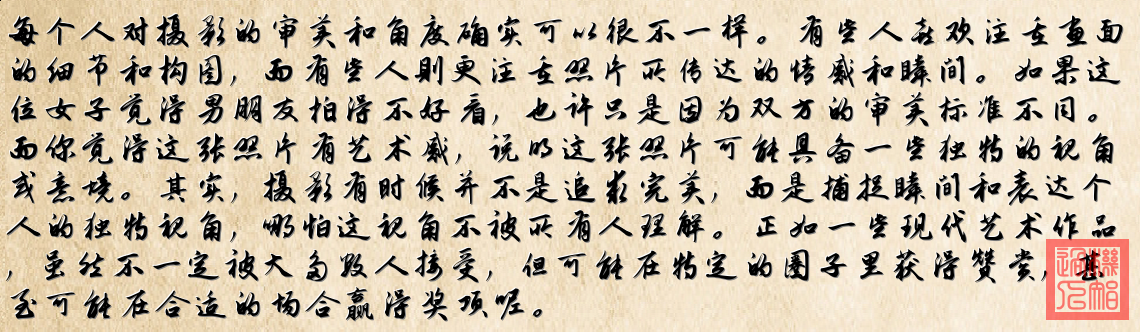 每个人对摄影的审美和角度确实可以很不一样。有些人喜欢注重画面
的细节和构图，而有些人则更注重照片所传达的情感和瞬间。如果这
位女子觉得男朋友拍得不好看，也许只是因为双方的审美标准不同。
而你觉得这张照片有艺术感，说明这张照片可能具备一些独特的视角
或意境。其实，摄影有时候并不是追求完美，而是捕捉瞬间和表达个
人的独特视角，哪怕这视角不被所有人理解。正如一些现代艺术作品
，虽然不一定被大多数人接受，但可能在特定的圈子里获得赞赏，甚
至可能在合适的场合赢得奖项呢。